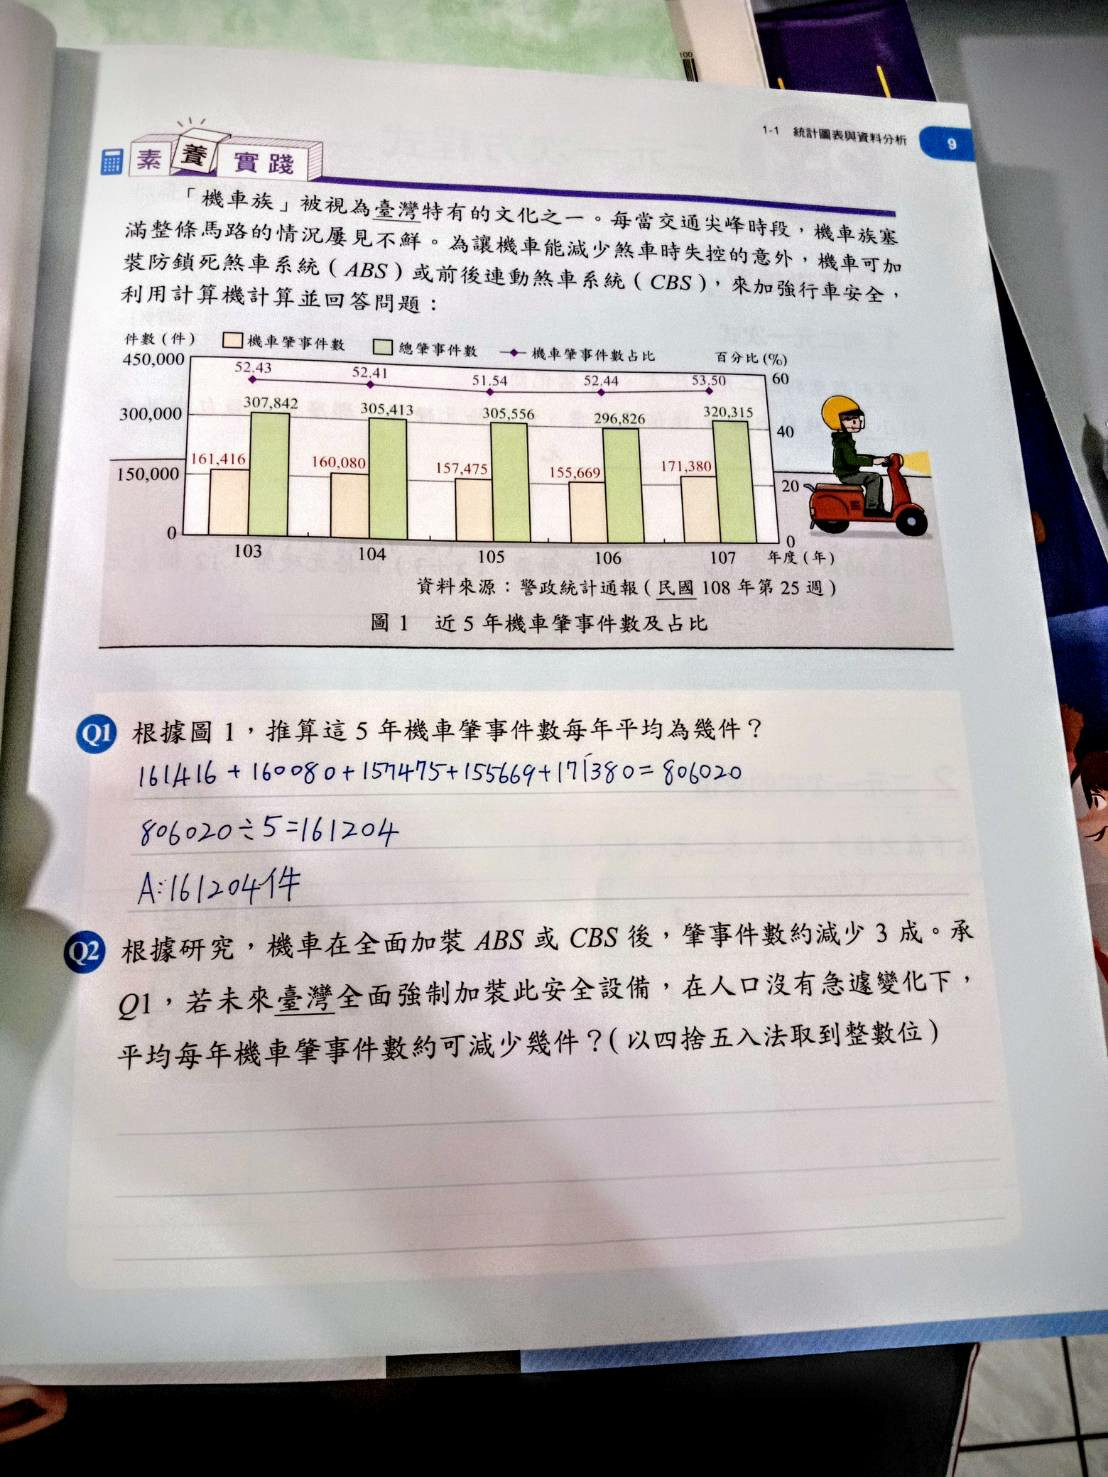 100
1-1 統計圖表與資料分析 9
素養實踐
「機車族」被視為臺灣特有的文化之一。每當交通尖峰時段,機車族塞
滿整條馬路的情況屢見不鮮。為讓機車能減少煞車時失控的意外,機車可加
裝防鎖死煞車系統(ABS)或前後連動煞車系統(CBS),來加強行車安全,
利用計算機計算並回答問題:
件數(件) 機車肇事件數 總肇事件數 機車肇事件數占比 百分比(%)
450,000 52.43 52.41 51.54 52.44 53.50 60
300,000 307,842 305,413 305,556 296,826 320,315 40
150,000 161,416 160,080 157,475 155,669 171,380 20
0 0
103 104 105 106 107 年度(年)
資料來源:警政統計通報(民國108年第25週)
圖1 近5年機車肇事件數及占比
Q1 根據圖1,推算這5年機車肇事件數每年平均為幾件?
161416+160080+157475+155669+171380=806020
806020÷5=161204
A:161204件
Q2 根據研究,機車在全面加裝ABS或CBS後,肇事件數約減少3成。承
Q1,若未來臺灣全面強制加裝此安全設備,在人口沒有急遽變化下,
平均每年機車肇事件數約可減少幾件?(以四捨五入法取到整數位)